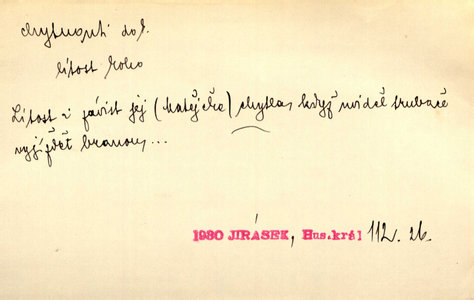 chytnouti dok.
lítost koho
Lítost i závist jej (Matějíčka) chytla, když uviděl trubače
vyjíždět branou, ...
1930 JIRÁSEK, Hus.král 112. 26.